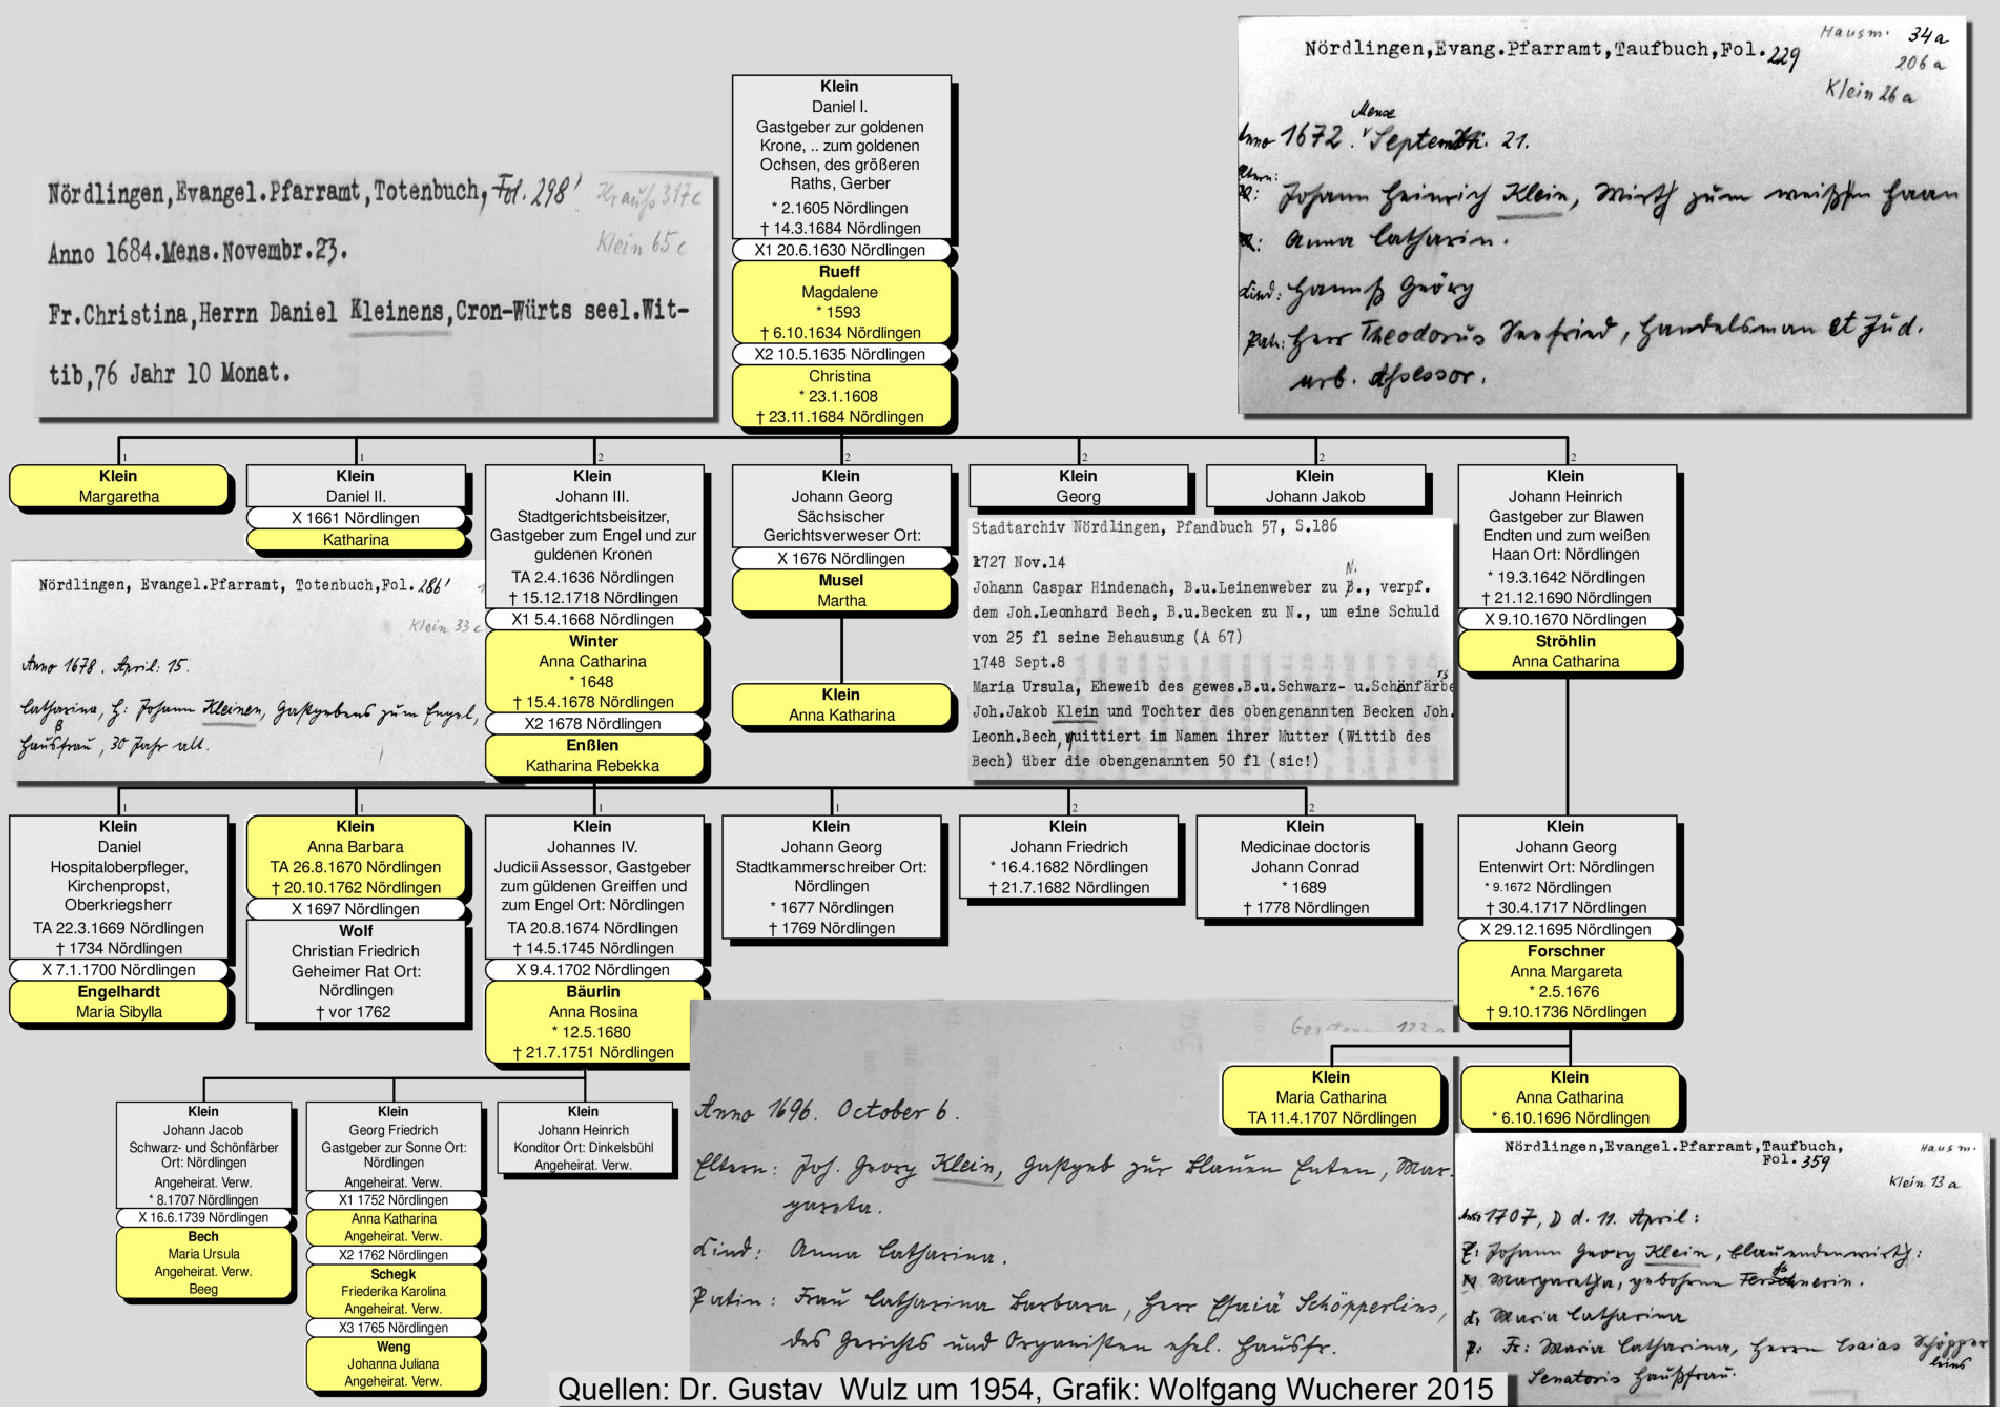 Nördlingen,Evang.Pfarramt,Taufbuch,Fol.229
Hausm. 34a
206a
Klein 26a
Anno 1672. Mense Septembr. 21.
Johann Heinrich Klein, Wirth zum weißen Haan
Anna Catharin.
Kind: Hannß Geörg
Path: Herr Theodorus Seefried, Handelsman et Jud.
urb. Assessor.
Nördlingen,Evangel.Pfarramt,Totenbuch,Fol.298'
Krauß 317c
Klein 65c
Anno 1684.Mens.Novembr.23.
Fr.Christina,Herrn Daniel Kleinens,Cron-Würts seel.Wit-
tib,76 Jahr 10 Monat.
Klein
Daniel I.
Gastgeber zur goldenen
Krone, .. zum goldenen
Ochsen, des größeren
Raths, Gerber
* 2.1605 Nördlingen
† 14.3.1684 Nördlingen
X1 20.6.1630 Nördlingen
Rueff
Magdalene
* 1593
† 6.10.1634 Nördlingen
X2 10.5.1635 Nördlingen
Christina
* 23.1.1608
† 23.11.1684 Nördlingen
1
Klein
Margaretha
1
Klein
Daniel II.
X 1661 Nördlingen
Katharina
2
Klein
Johann III.
Stadtgerichtsbeisitzer,
Gastgeber zum Engel und zur
guldenen Kronen
TA 2.4.1636 Nördlingen
† 15.12.1718 Nördlingen
X1 5.4.1668 Nördlingen
Winter
Anna Catharina
* 1648
† 15.4.1678 Nördlingen
X2 1678 Nördlingen
Enßlen
Katharina Rebekka
2
Klein
Johann Georg
Sächsischer
Gerichtsverweser Ort:
X 1676 Nördlingen
Musel
Martha
Klein
Anna Katharina
2
Klein
Georg
2
Klein
Johann Jakob
2
Klein
Johann Heinrich
Gastgeber zur Blawen
Endten und zum weißen
Haan Ort: Nördlingen
* 19.3.1642 Nördlingen
† 21.12.1690 Nördlingen
X 9.10.1670 Nördlingen
Ströhlin
Anna Catharina
Nördlingen, Evangel.Pfarramt, Totenbuch,Fol.286'
Klein 33c
Anno 1678. April: 15.
Catharina, H: Johann Kleinen, Gastgebens zum Engel,
Haußfrau, 30 Jahr alt.
Stadtarchiv Nördlingen, Pfandbuch 57, S.186
1727 Nov.14
Johann Caspar Hindenach, B.u.Leinenweber zu N., verpf.
dem Joh.Leonhard Bech, B.u.Becken zu N., um eine Schuld
von 25 fl seine Behausung (A 67)
1748 Sept.8
Maria Ursula, Eheweib des gewes.B.u.Schwarz- u.Schönfärbe
Joh.Jakob Klein und Tochter des obengenannten Becken Joh.
Leonh.Bech, quittiert im Namen ihrer Mutter (Wittib des
Bech) über die obengenannten 50 fl (sic!)
1
Klein
Daniel
Hospitaloberpfleger,
Kirchenpropst,
Oberkriegsherr
TA 22.3.1669 Nördlingen
† 1734 Nördlingen
X 7.1.1700 Nördlingen
Engelhardt
Maria Sibylla
1
Klein
Anna Barbara
TA 26.8.1670 Nördlingen
† 20.10.1762 Nördlingen
X 1697 Nördlingen
Wolf
Christian Friedrich
Geheimer Rat Ort:
Nördlingen
† vor 1762
1
Klein
Johannes IV.
Judicii Assessor, Gastgeber
zum güldenen Greiffen und
zum Engel Ort: Nördlingen
TA 20.8.1674 Nördlingen
† 14.5.1745 Nördlingen
X 9.4.1702 Nördlingen
Bäurlin
Anna Rosina
* 12.5.1680
† 21.7.1751 Nördlingen
1
Klein
Johann Georg
Stadtkammerschreiber Ort:
Nördlingen
* 1677 Nördlingen
† 1769 Nördlingen
2
Klein
Johann Friedrich
* 16.4.1682 Nördlingen
† 21.7.1682 Nördlingen
2
Klein
Medicinae doctoris
Johann Conrad
* 1689
† 1778 Nördlingen
Klein
Johann Georg
Entenwirt Ort: Nördlingen
* 9.1672 Nördlingen
† 30.4.1717 Nördlingen
X 29.12.1695 Nördlingen
Forschner
Anna Margareta
* 2.5.1676
† 9.10.1736 Nördlingen
Klein
Maria Catharina
TA 11.4.1707 Nördlingen
Klein
Anna Catharina
* 6.10.1696 Nördlingen
Klein
Johann Jacob
Schwarz- und Schönfärber
Ort: Nördlingen
Angeheirat. Verw.
* 8.1707 Nördlingen
X 16.6.1739 Nördlingen
Bech
Maria Ursula
Angeheirat. Verw.
Beeg
Klein
Georg Friedrich
Gastgeber zur Sonne Ort:
Nördlingen
Angeheirat. Verw.
X1 1752 Nördlingen
Anna Katharina
Angeheirat. Verw.
X2 1762 Nördlingen
Schegk
Friederika Karolina
Angeheirat. Verw.
X3 1765 Nördlingen
Weng
Johanna Juliana
Angeheirat. Verw.
Klein
Johann Heinrich
Konditor Ort: Dinkelsbühl
Angeheirat. Verw.
123a
Anno 1696. October 6.
Eltern: Joh. Georg Klein, Gastgeb zur Blauen Enten, Mar-
gareta.
Kind: Anna Catharina.
Patin: Frau Catharina Barbara, Herr Esaiä Schöpperlins,
des Gerichts und Organisten ehel. Hausfr.
Nördlingen,Evangel.Pfarramt,Taufbuch,
Fol.359
Hausm.
Klein 13a
Anno 1707, D d. 11. April:
Johann Georg Klein, Blauendenwirth:
Margaretha, geborene Forschnerin.
K. Maria Catharina
P. Fr: Maria Catharina, Herrn Esaias Schöpper-
leins
Senatoris Haußfrau.
Quellen: Dr. Gustav Wulz um 1954, Grafik: Wolfgang Wucherer 2015